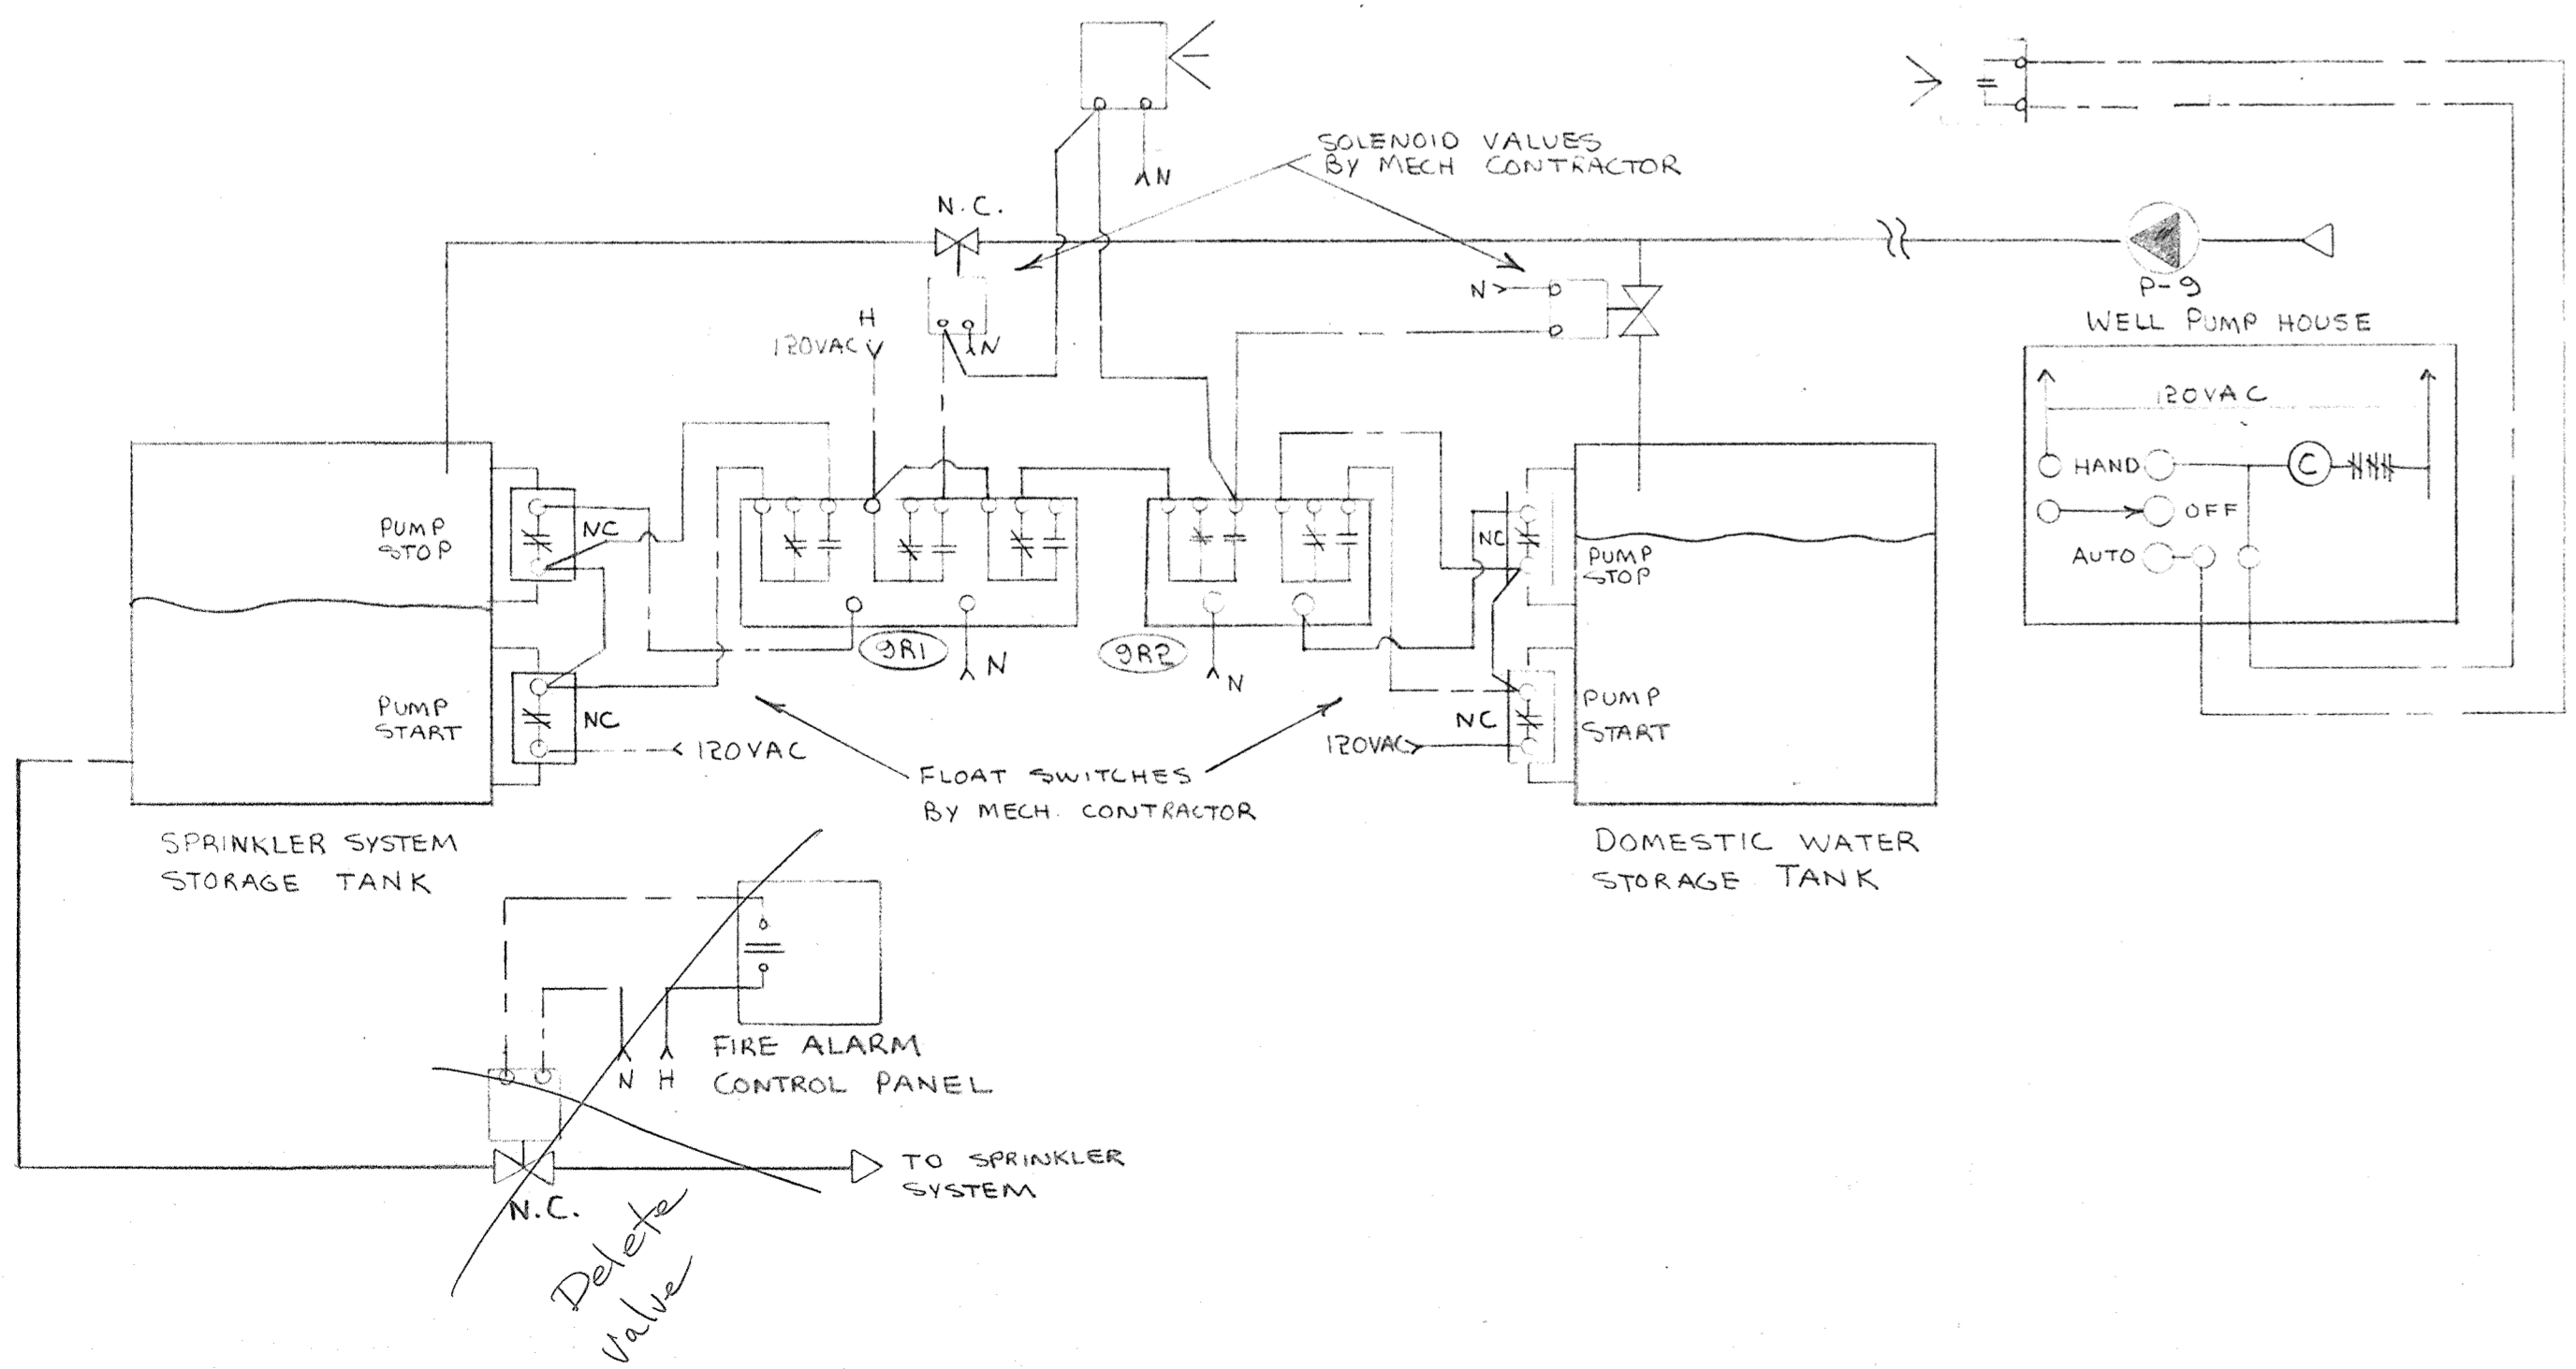 SOLENOID VALUES
BY MECH CONTRACTOR
N
N.C.
N
P-9
WELL PUMP HOUSE
H
120VAC
N
120VAC
HAND
C
OFF
AUTO
PUMP
STOP
NC
NC
PUMP
STOP
9R1
N
9R2
N
PUMP
START
NC
120VAC
NC
PUMP
START
120VAC
FLOAT SWITCHES
BY MECH. CONTRACTOR
SPRINKLER SYSTEM
STORAGE TANK
DOMESTIC WATER
STORAGE TANK
FIRE ALARM
CONTROL PANEL
N H
TO SPRINKLER
SYSTEM
N.C.
Delete
Valve